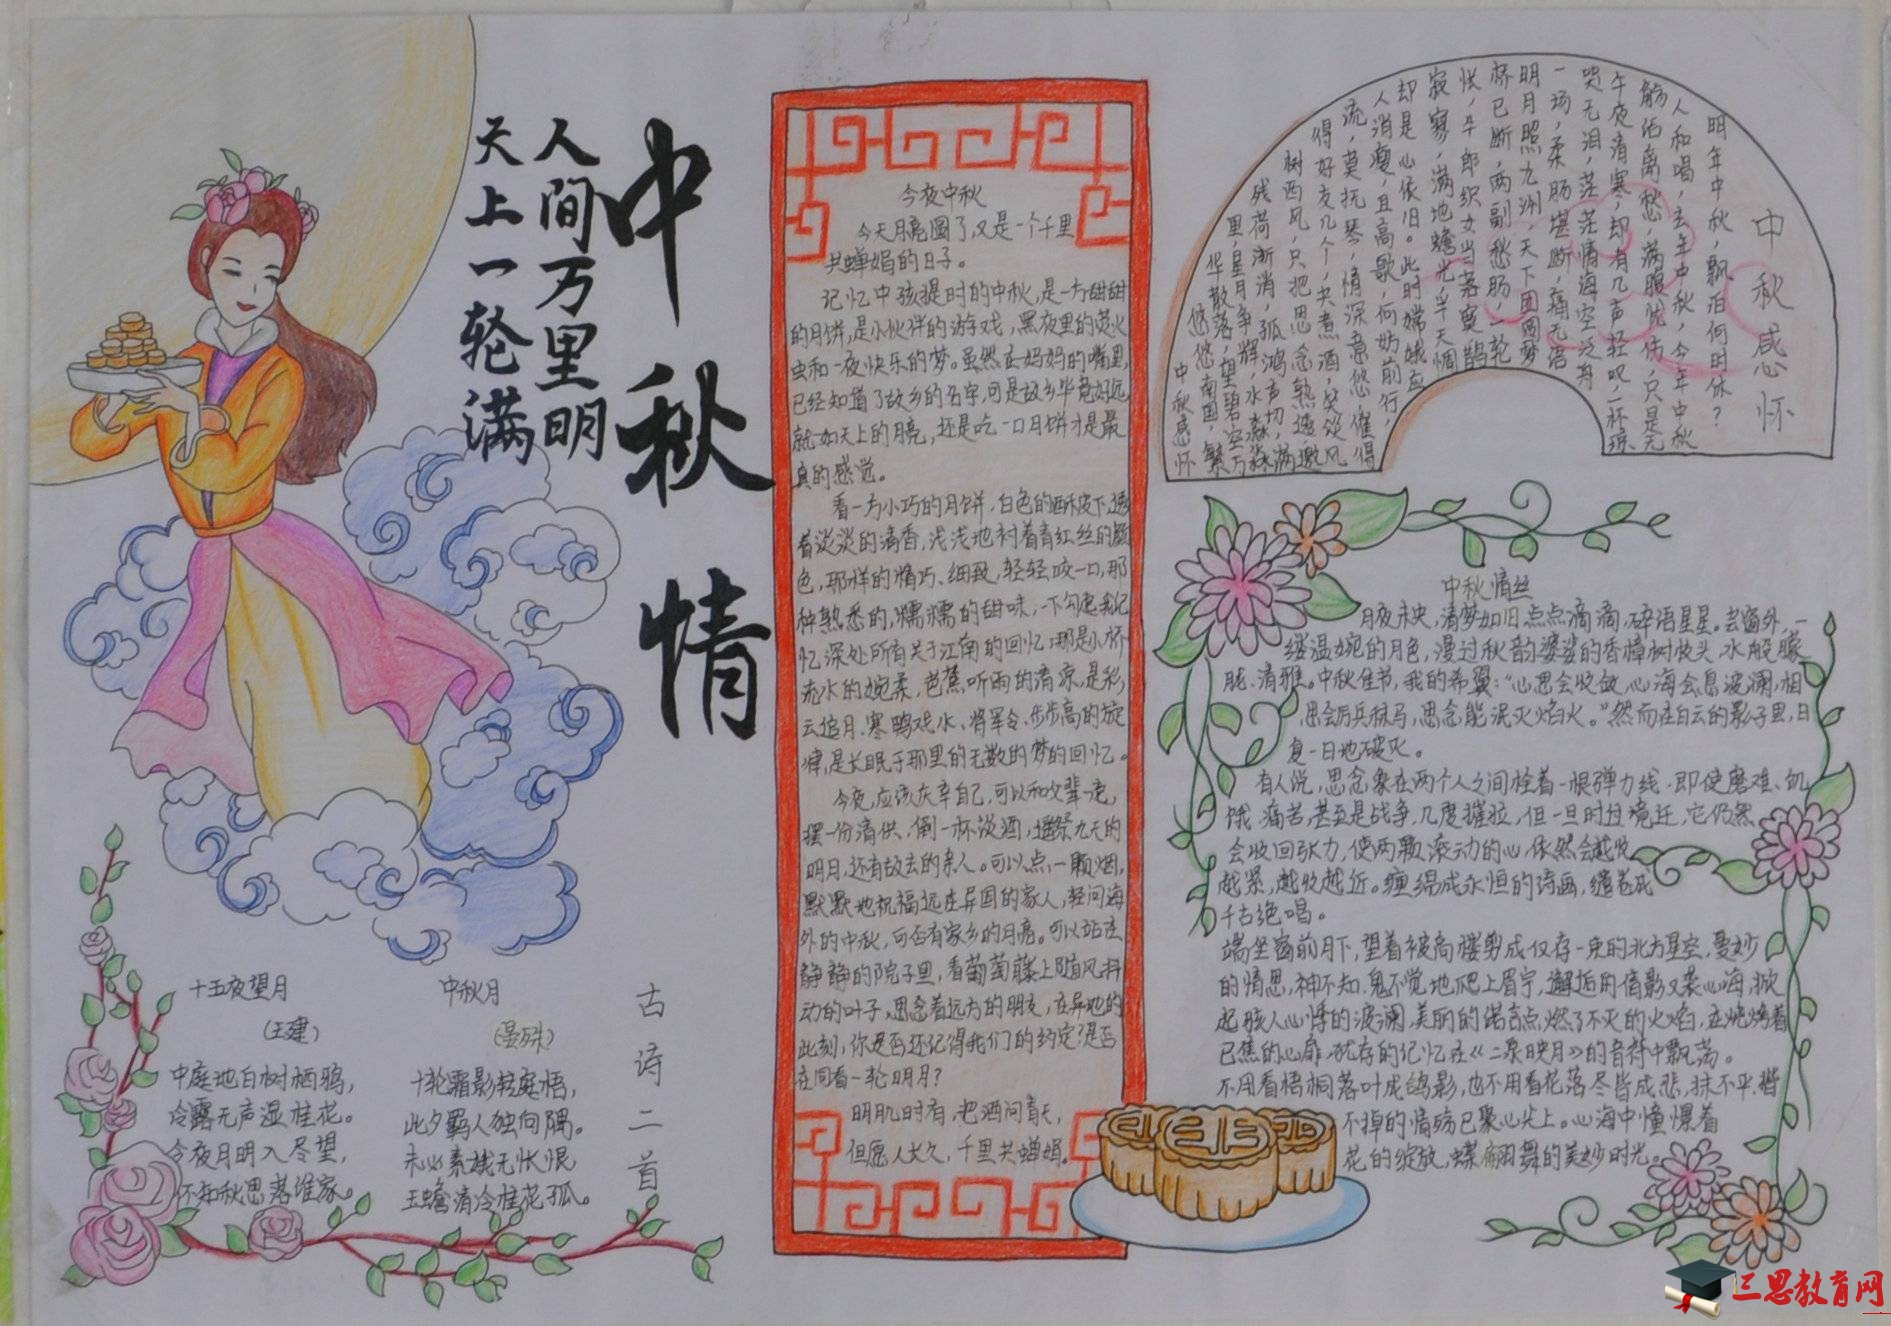 中秋情
人间万里明
天上一轮满
十五夜望月
(王建)
中庭地白树栖鸦，
冷露无声湿桂花。
今夜月明人尽望，
不知秋思落谁家。
中秋月
(晏殊)
十轮霜影转庭梧，
此夕羁人独向隅。
未必素娥无怅恨，
玉蟾清冷桂花孤。
古诗二首
今夜中秋
今天月亮圆了，又是一个千里
共蝉娟的日子。
记忆中孩提时的中秋，是一方甜甜
的月饼，是小伙伴的游戏，黑夜里的萤火
虫和一夜快乐的梦。虽然在妈妈的嘴里，
已经知道了故乡的名字，可是故乡毕竟好远
就如天上的月亮，还是吃一口月饼才是最
真的感觉。
看一方小巧的月饼，白色的酥皮下，透
着淡淡的清香，浅浅地衬着青红丝的颜
色，那样的精巧、细致，轻轻咬一口，那
种熟悉的，糯糯的甜味，一下勾起我记
忆深处所有关于江南的回忆；那是小桥
流水的婉柔，芭蕉听雨的清凉，是彩
云追月、寒鸭戏水、将军令、步步高的旋
律，是长眠于那里的无数的梦的回忆。
今夜，应该庆幸自己，可以和父辈一起，
摆一份清供，倒一杯淡酒，遥祭九天的
明月，还有故去的亲人。可以点一颗烟，
默默地祝福远在异国的家人，轻问海
外的中秋，可否有家乡的月亮。可以站在
静静的院子里，看葡萄藤上随风抖
动的叶子，思念着远方的朋友，在异地的
此刻，你是否还记得我们的约定？是否
在同看一轮明月？
明月几时有，把酒问青天，
但愿人长久，千里共蝉娟。
中秋感怀
明年中秋，飘泊何时休？
人和唱，去年中秋，今年中秋
觞佰离愁，满腹忧伤，只是无
午夜清寒，却有几声轻叹，一杯琼
哭无泪，茫茫情海空泛舟
一场，柔肠堪断，痛无语
明月照九洲，天下团圆梦
桥已断，两副愁肠，一轮
怅，牛郎织女当落寞，鹊
寂寥，满地蟾光，半天惆
却是心依旧。此时嫦娥应
人消瘦，且高歌，何妨前行，
流，莫抚琴，情深意悠，催得
得好友几个，共煮酒，笑谈风
树西风，只把思念熟透，邀
残荷渐消，孤鸿声切，满
里，星月争辉，水淼淼
华散落，望碧空万
悠悠南国，繁
中秋感怀
中秋情丝
月夜未央，清梦如旧，点点滴滴，碎语星星。云窗外，一
缕温婉的月色，漫过秋韵婆娑的香樟树枝头，水般朦
胧、清雅。中秋佳节，我的希冀：“心思会收敛，心海会息波澜，相
思会厉兵秣马，思念能泯灭焰火。”然而在白云的影子里，日
复一日地破灭。
有人说，思念象在两个人之间栓着一根弹力线，即使磨难、饥
饿、痛苦，甚至是战争，几度摧拉，但一旦时过境迁，它仍然
会收回张力，使两颗滚动的心，依然会越收
越紧，越收越近。缠绵成永恒的诗画，缱卷成
千古绝唱。
端坐窗前月下，望着被高楼剪成仅存一束的北方星空，曼妙
的情思，神不知、鬼不觉地爬上眉宇，邂逅的倩影又袭心海，掀
起骇人心悸的波澜，美丽的诺言点燃了不灭的火焰，在烧烤着
已焦的心扉，犹存的记忆在《二泉映月》的音符中飘荡。
不用看梧桐落叶成鸽影，也不用看花落尽皆成悲，抹不平、揩
不掉的情殇已聚心尖上。心海中憧憬着
花的绽放，蝶翩舞的美妙时光。
三思教育网